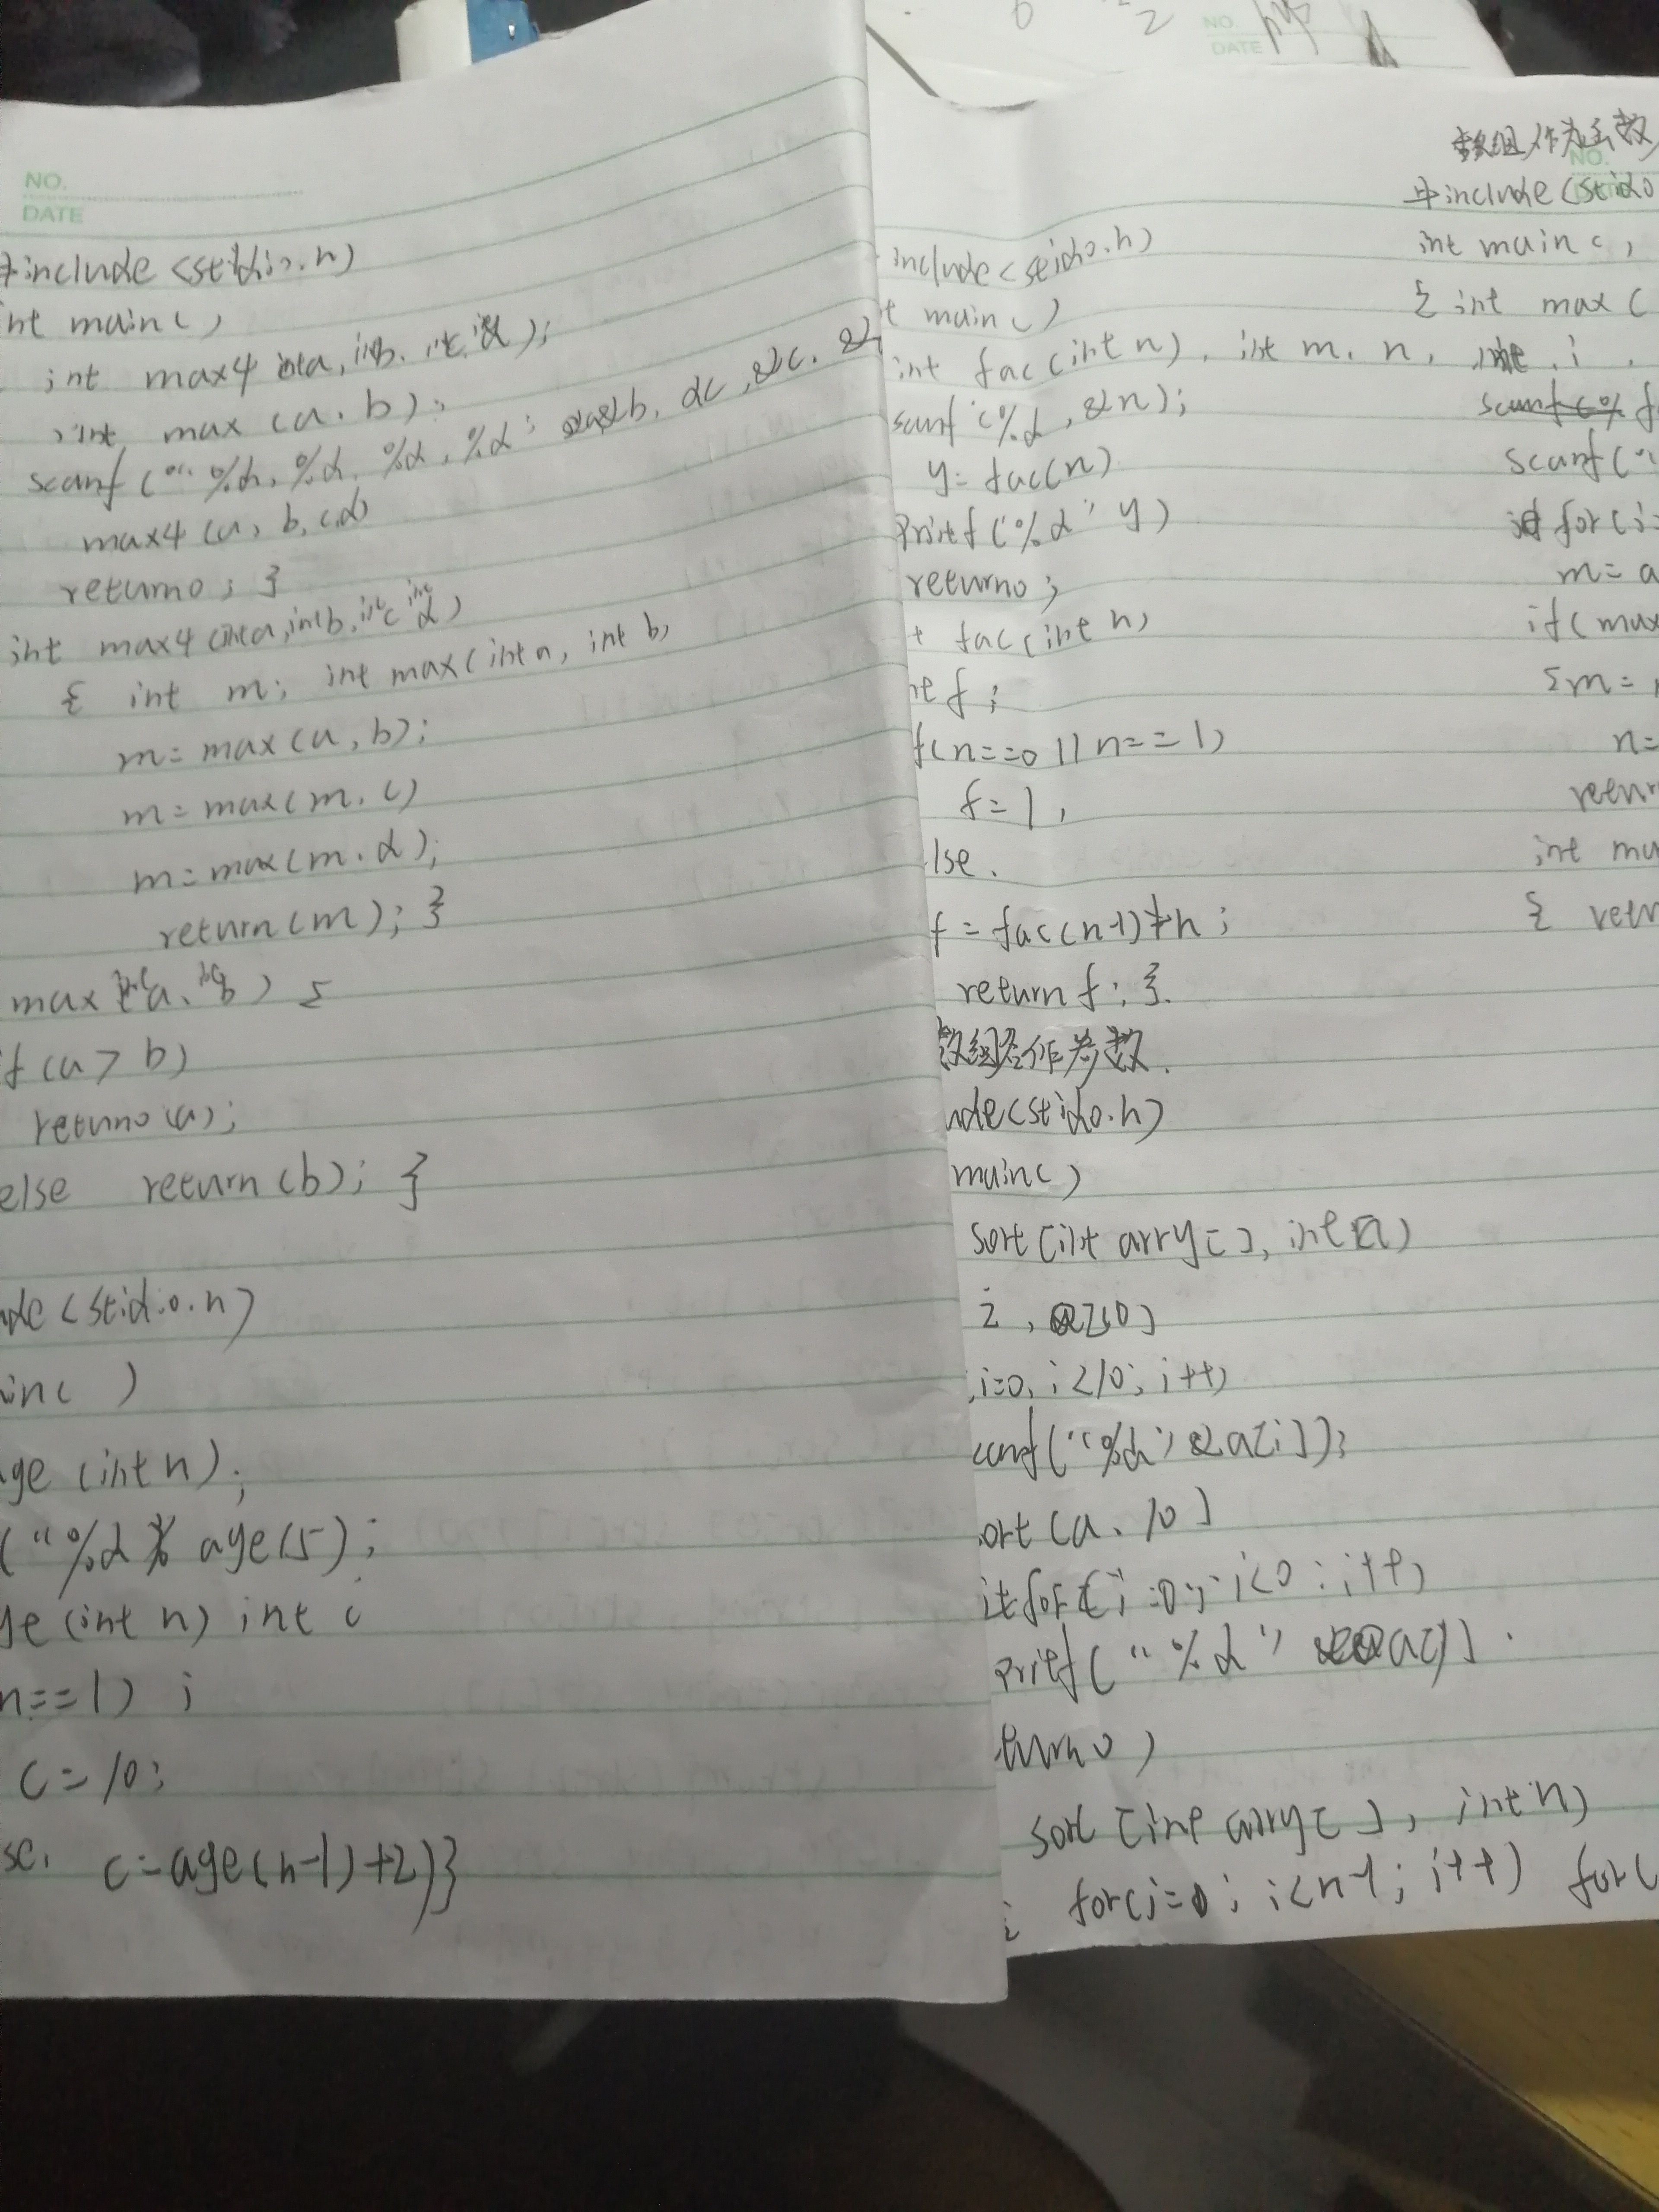 NO.
DATE
#include <stidio.h)
int main()
int max4 inta, intb, intc, intd);
int max (a, b);
scanf ("%d, %d, %d, %d" &b, &c
max4 (a, b, c, d)
return0; }
int max4 (inta, intb, intc intd)
{ int m; int max(int a, int b)
m=max(a,b);
m=max(m,c)
m=max(m,d);
return(m); }
max inta, intb) {
f (a>b)
return0(a);
else return(b); }
ude <stidio.h)
in( )
ge (int n);
("%d age(5);
ge (int n) int c
n==1) ;
c=10;
se. c=age(n-1)+2)}
NO.
DATE
include<stido.h)
t main()
int fac(int n), int m, n,
scanf (%d, &n);
y=fac(n)
Printf("%d" y)
return0;
t fac(int n)
nt f;
f(n==0 || n==1)
f=1,
lse.
f=fac(n-1)*n;
return f; }.
数组名作为参数.
ude(stido.h)
main()
sort [int arry[], int n)
i, a[10]
i=0, i<10; i++)
canf("%d" &a[i]);
ort (a, 10]
for i=0; i<0; i++)
printf("%d"
turn0)
sort [int arry[], int n)
for(i=0; i<n-1; i++) for(
数组作为函数
NO.
#include (stido
int main()
{ int max (
int i.
f
scanf("
for(i=
m=a
if(max
{m=
n=
return
int ma
{ retur